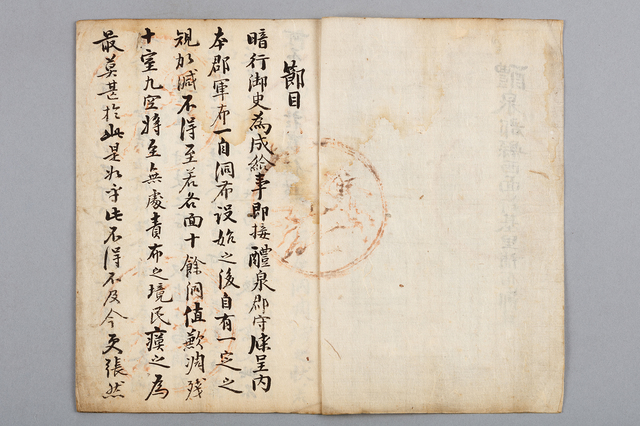 節目
暗行御史為成給事即接醴泉郡守牒呈內
本郡軍布一自洞布設始之後自有一定之
規加減不得至若各面十餘洞值歉凋殘
十室九空將至無處責布之境民瘼之為
最莫甚於此是如乎此不得不及今更張然